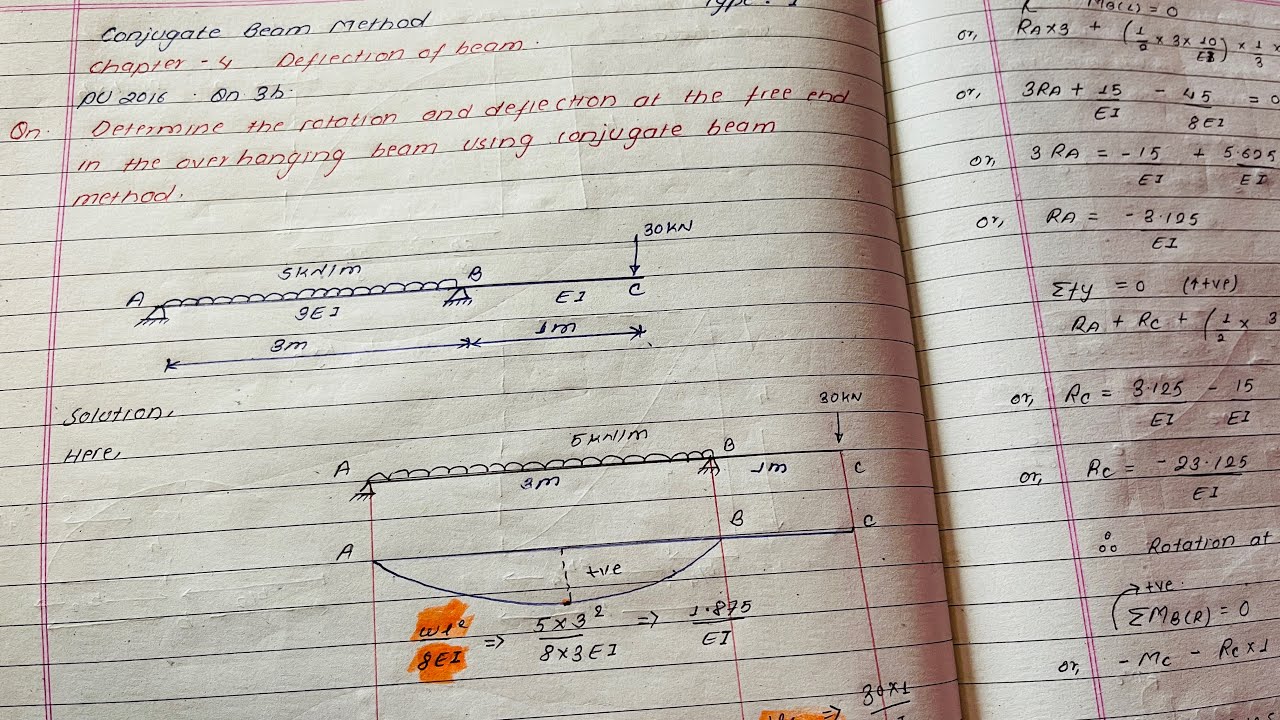 Conjugate Beam Method
Chapter - 4 Deflection of beam.
PU 2016 . Qn 3b.
Qn. Determine the rotation and deflection at the free end
in the overhanging beam using conjugate beam
method.
30KN
5KN/m
A B C
3EI EI
3m 1m
Solution,
Here,
30KN
5KN/m
A B C
3m 1m
A B C
+ve
wl²/8EI => 5×3²/8×3EI => 1.875/EI
=> 30×1
MB(L) = 0
or, RA×3 + (1/2 × 3 × 10/EI) × 1/3 ×
or, 3RA + 15/EI - 45/8EI = 0
or, 3RA = -15/EI + 5.625/EI
or, RA = -3.125/EI
Σfy = 0 (↑+ve)
RA + RC + (1/2 × 3
or, RC = 3.125/EI - 15/EI
or, RC = -23.125/EI
∴ Rotation at
+ve
ΣMB(R) = 0
or, -MC - RC×1